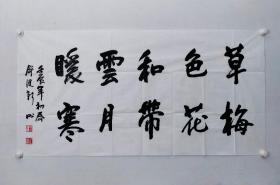 草色和雲暖
梅花帶月寒
壬辰年初春